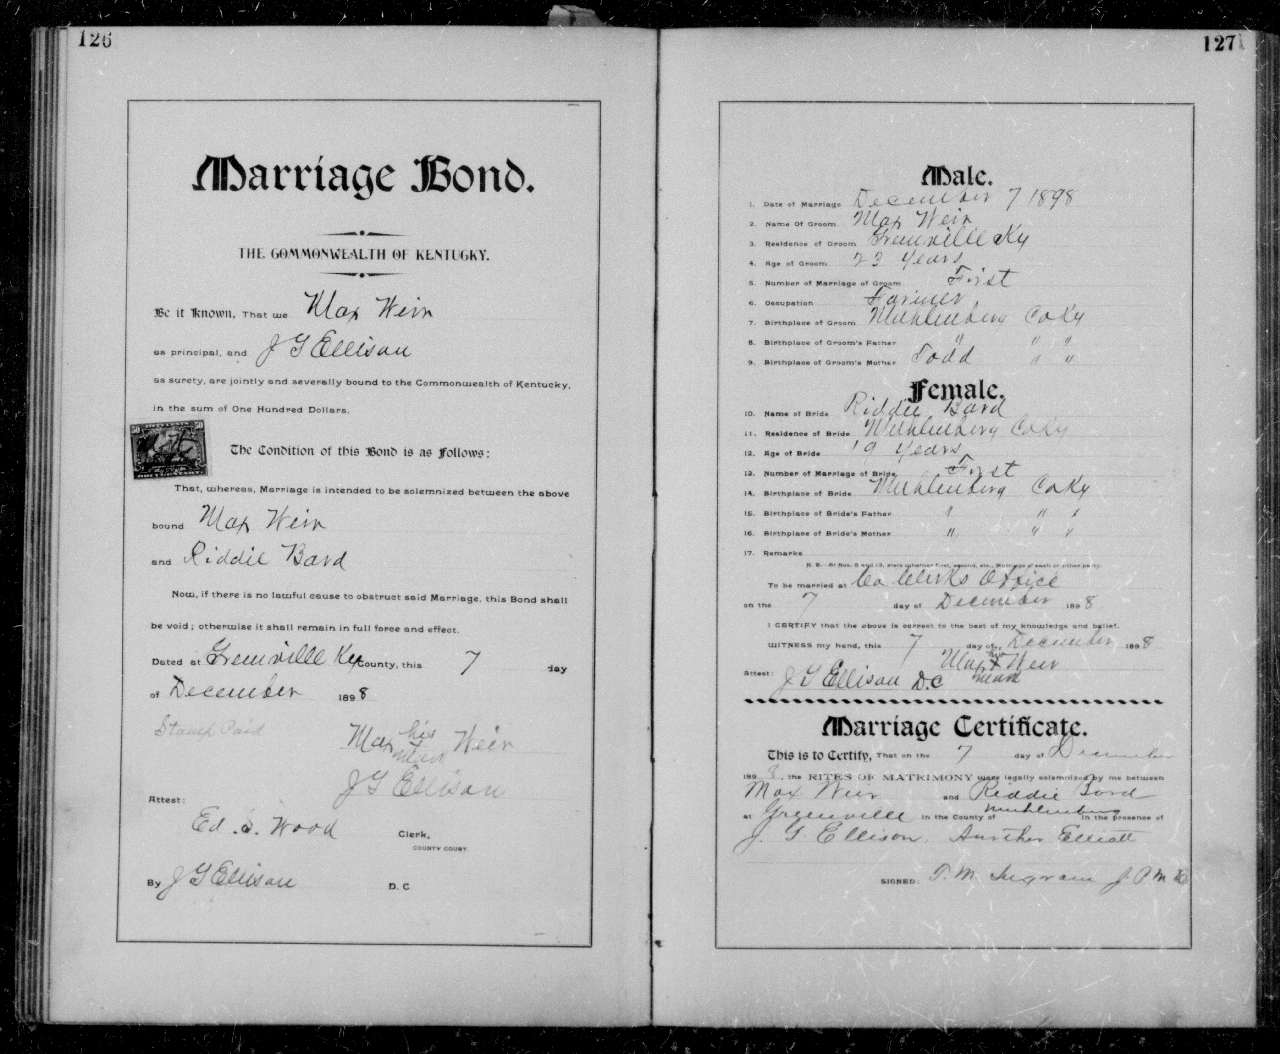 126
Marriage Bond.
THE COMMONWEALTH OF KENTUCKY.
Be it Known, That we Max Weir
as principal, and J G Ellison
as surety, are jointly and severally bound to the Commonwealth of Kentucky,
in the sum of One Hundred Dollars.
50 FIFTY CENTS 50
DOCUMENTARY
The Condition of this Bond is as Follows:
That, whereas, Marriage is intended to be solemnized between the above
bound Max Weir
and Riddie Bard
Now, if there is no lawful cause to obstruct said Marriage, this Bond shall
be void; otherwise it shall remain in full force and effect.
Dated at Greenville Ky County, this 7 day
of December 1898
Stamp Paid
Max his Weir
mark
J G Ellison
Attest:
Ed. S. Wood Clerk,
COUNTY COURT.
By J G Ellison D. C
127
Male.
1. Date of Marriage December 7 1898
2. Name Of Groom Max Weir
3. Residence of Groom Greenville Ky
4. Age of Groom 23 Years
5. Number of Marriage of Groom First
6. Occupation Farmer
7. Birthplace of Groom Muhlenberg Co Ky
8. Birthplace of Groom's Father " " "
9. Birthplace of Groom's Mother Todd " "
Female.
10. Name of Bride Riddie Bard
11. Residence of Bride Muhlenberg Co Ky
12. Age of Bride 19 Years
13. Number of Marriage of Bride First
14. Birthplace of Bride Muhlenberg Co Ky
15. Birthplace of Bride's Father " " "
16. Birthplace of Bride's Mother " " "
17. Remarks
N. B.—At Nos. 5 and 13, state whether first, second, etc., Marriage of each or either party.
To be married at Co Clerks Office
on the 7 day of December 1898
I CERTIFY that the above is correct to the best of my knowledge and belief.
WITNESS my hand, this 7 day of December 1898
Max his X Weir
mark
Attest: J G Ellison D.C
Marriage Certificate.
This is to Certify, That on the 7 day of December
1898, the RITES OF MATRIMONY were legally solemnized by me between
Max Weir and Riddie Bard
at Greenville in the County of Muhlenburg in the presence of
J. G. Ellison, Elliott
SIGNED: T. M. Ingram J. P. M